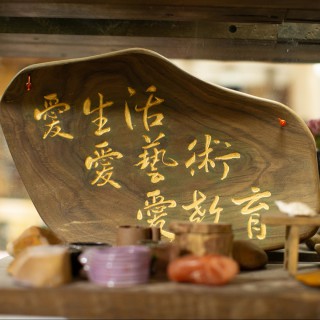 愛生活
愛藝術
愛教育